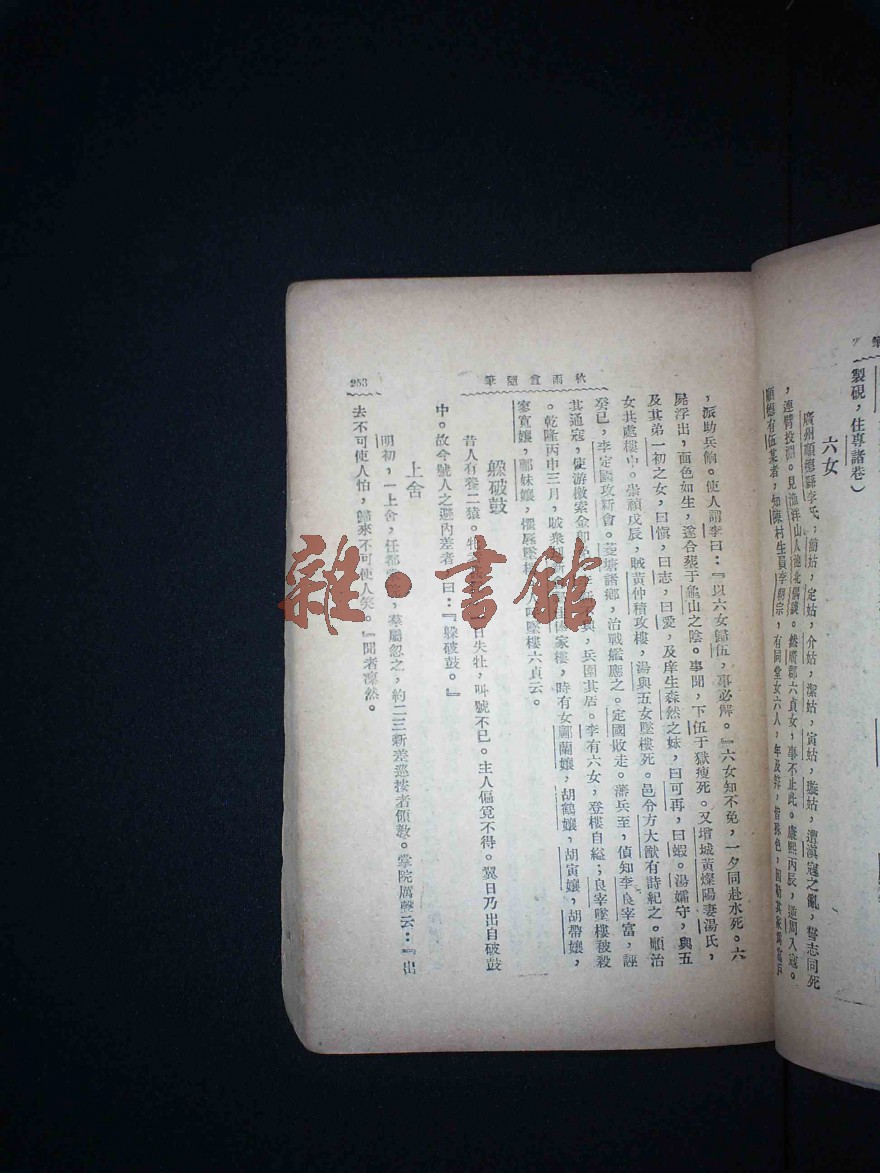 製硯，住專諸巷）
六女
廣州順德縣李氏，
，連臂投淵。見漁洋山人池北偶談。然廣郡六貞女，事不止此。康熙丙辰，
順德有伍某者，知陳村生員李朝宗，有同堂女六人，年及笄，皆殊色，
，派助兵餉。使人謂李曰：『以六女歸伍，事必解。』六女知不免，一夕同赴水死。六
屍浮出，面色如生，遂合葬于龜山之陰。事聞，下伍于獄瘦死。又增城黃燦陽妻湯氏，
及其弟一初之女，曰愼，曰志，曰愛，及庠生森然之妹，曰可再，曰蝦。湯孀守，與五
女共處樓中。崇禎戊辰，賊黃仲積攻樓，湯與五女墜樓死。邑令方大猷有詩紀之。順治
癸巳，李定國攻新會。菱塘諸鄉，治戰艦應之。定國敗走。藩兵至，偵知李良宰富，誣
其通寇，使游檄索金，兵圍其居。李有六女，登樓自縊；良宰墜樓被殺
。乾隆丙申三月，賊衆家樓，時有女鄺蘭孃，胡鶴孃，胡寅孃，胡帶孃，
寥寬孃，鄺妹孃，懼辱墜樓墜樓六貞云。
躱破鼓
昔人有養二猿。日失牡，叫號不已。主人偏覓不得。翼日乃出自破鼓
中。故今號人之避內差者曰：『躱破鼓。』
上舍
明初，一上舍，任都，羣屬忽之，約二三新差巡按者領敎。掌院厲聲云：『出
去不可使人怕，歸來不可使人笑。』聞者凜然。
秋雨盦隨筆
253
雜·書館